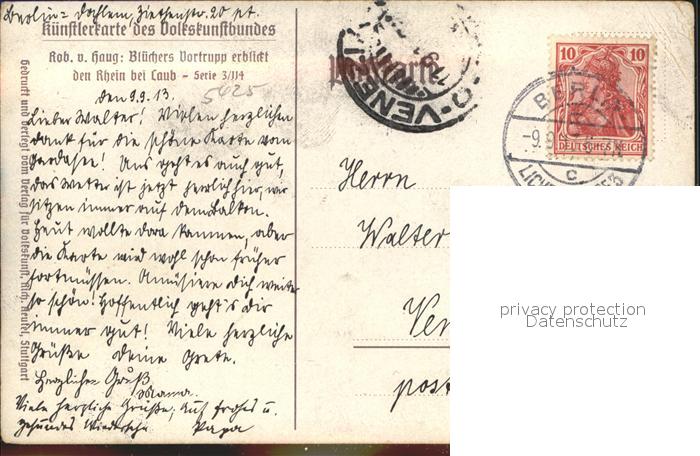 Berlin-Dahlem, Ziethenstr. 20 pt.
Künstlerkarte des Volkskunstbundes
Rob. v. Haug: Blüchers Vortrupp erblickt
den Rhein bei Caub – Serie 3/114
den 9.9.13.
5625
Lieber Walter! Vielen herzlichen
Dank für die schöne Karte vom
Gardasee! Uns geht es auch gut,
das Wetter ist jetzt herrlich hier, wir
sitzen immer auf dem Balkon.
Heut wollte Dora kommen, aber
die Karte wird wohl schon früher
fortmüssen. Amüsiere dich weiter
so schön! Hoffentlich geht's dir
immer gut! Viele herzliche
Grüße deine Grete.
Herzlichen Gruß
Mama.
Viele herzliche Grüße, auf frohes u.
gesundes Wiedersehn Papa
Gedruckt und verlegt vom Verlag für Volkskunst, Rich. Keutel, Stuttgart
Postkarte
VENEZIA
10 10
DEUTSCHES REICH
BERLIN
-9.9.
C
Herrn
Walter
Ven
post
privacy protection
Datenschutz